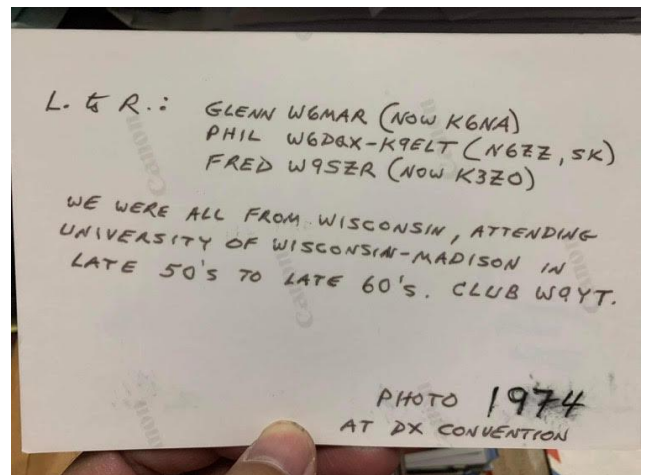 L. to R.: GLENN W6MAR (NOW K6NA)
PHIL W6DQX-K9ELT (N6ZZ, SK)
FRED W9SZR (NOW K3ZO)
WE WERE ALL FROM WISCONSIN, ATTENDING
UNIVERSITY OF WISCONSIN-MADISON IN
LATE 50'S TO LATE 60'S. CLUB W9YT.
PHOTO 1974
AT DX CONVENTION
Canon
Canon
Canon
Canon
Canon
Canon